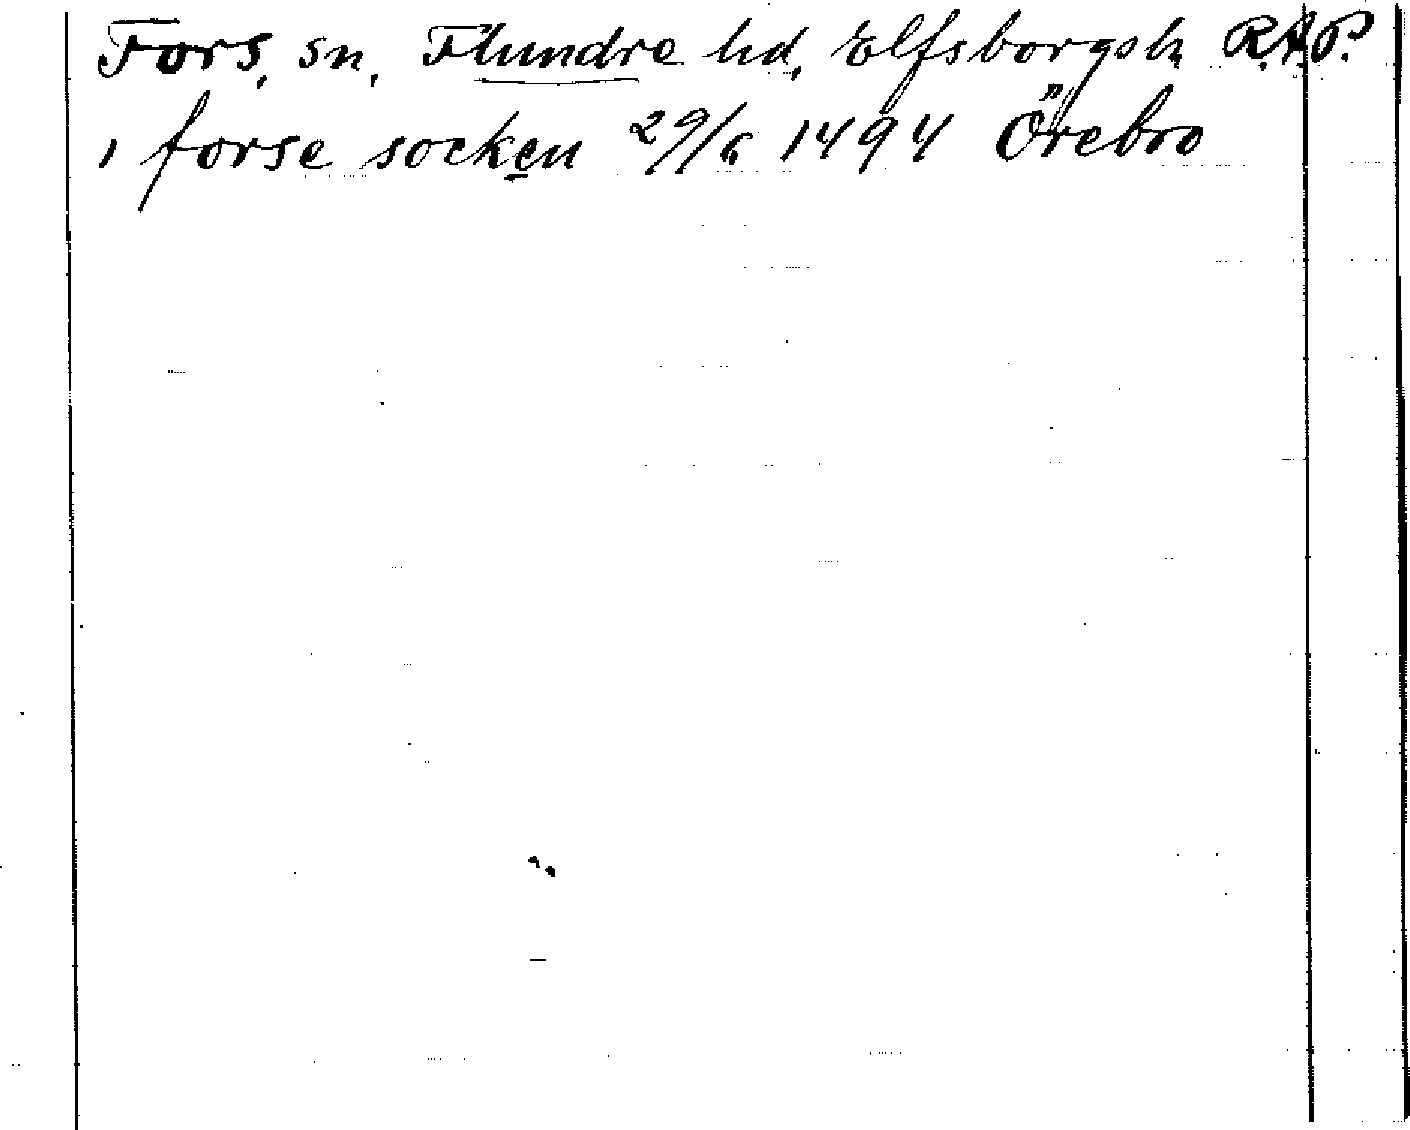 Fors, sn, Flundre hd, Elfsborgsl. R.A.P.
i forse socken 29/6 1494 Örebro